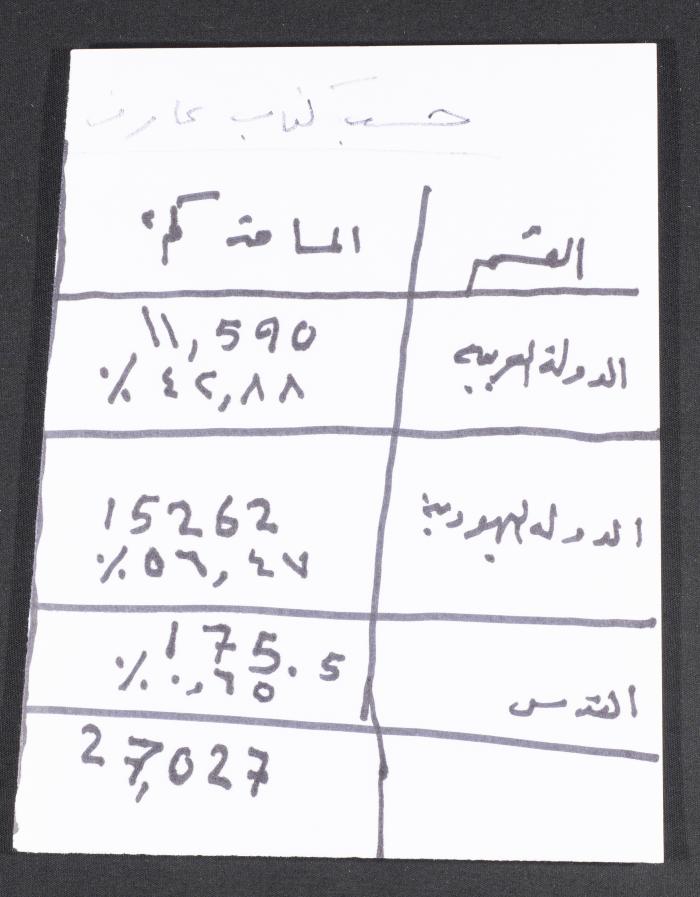 حسب كتاب عارف
القسم المساحة كم²
الدولة العربية 11,590
٪ ٤٢,٨٨
الدولة اليهودية 15262
٪ ٥٦,٤٧
القدس 175.5
٪ ٠,٦٥
27,027